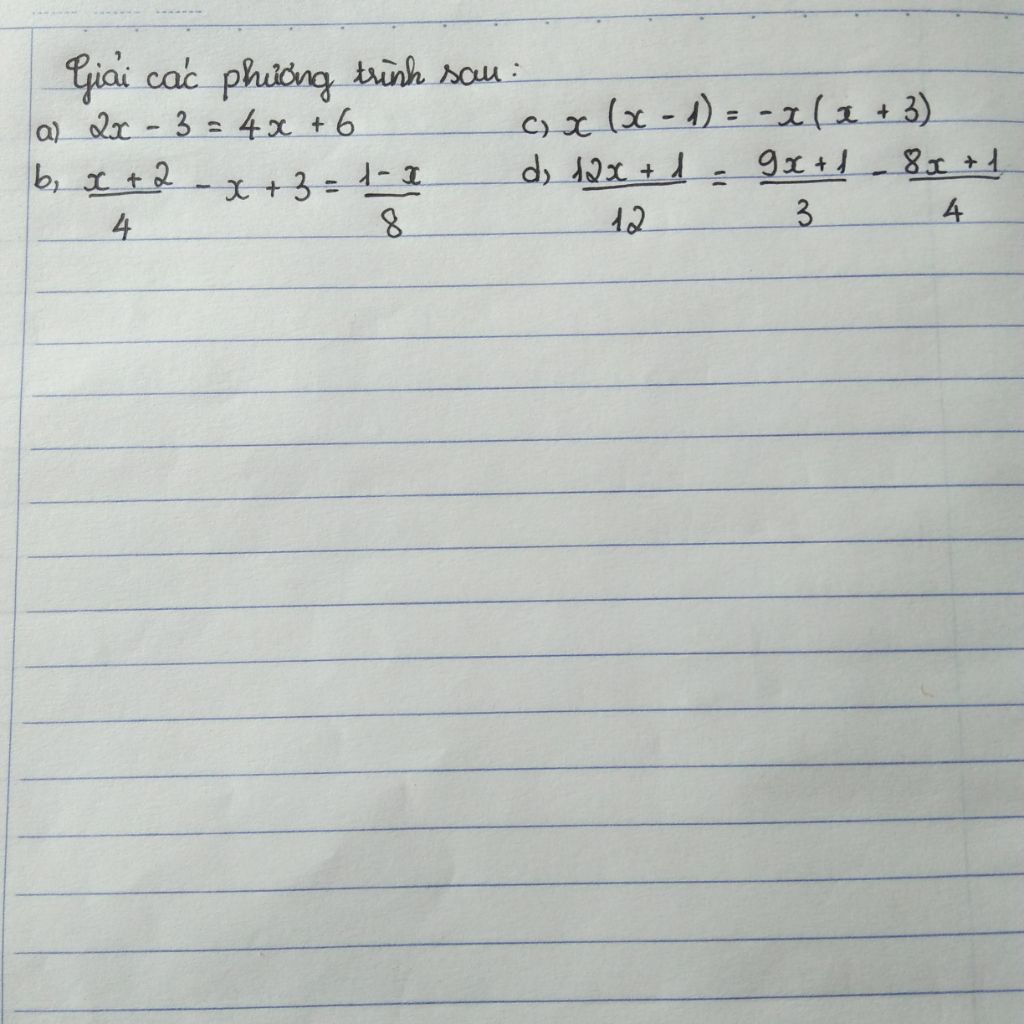 Giải các phương trình sau:
a) 2x - 3 = 4x + 6
c) x (x - 1) = -x ( x + 3)
b) \frac{x + 2}{4} - x + 3 = \frac{1 - x}{8}
d) \frac{12x + 1}{12} = \frac{9x + 1}{3} - \frac{8x + 1}{4}